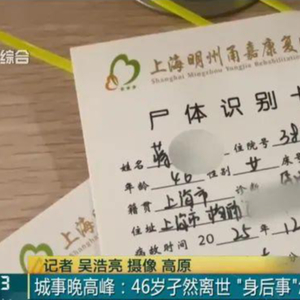 综合
上海明州甬嘉康复
Shanghai Mingzhou Yongjia Rehabilitation
尸体识别卡
姓名 蒋 住院号 38
年龄 46 性别 女 床号
籍贯 上海市
住址 上海市
病故时间 20 年 12
记者 吴浩亮 摄像 高原
城事晚高峰：46岁孑然离世 "身后事"